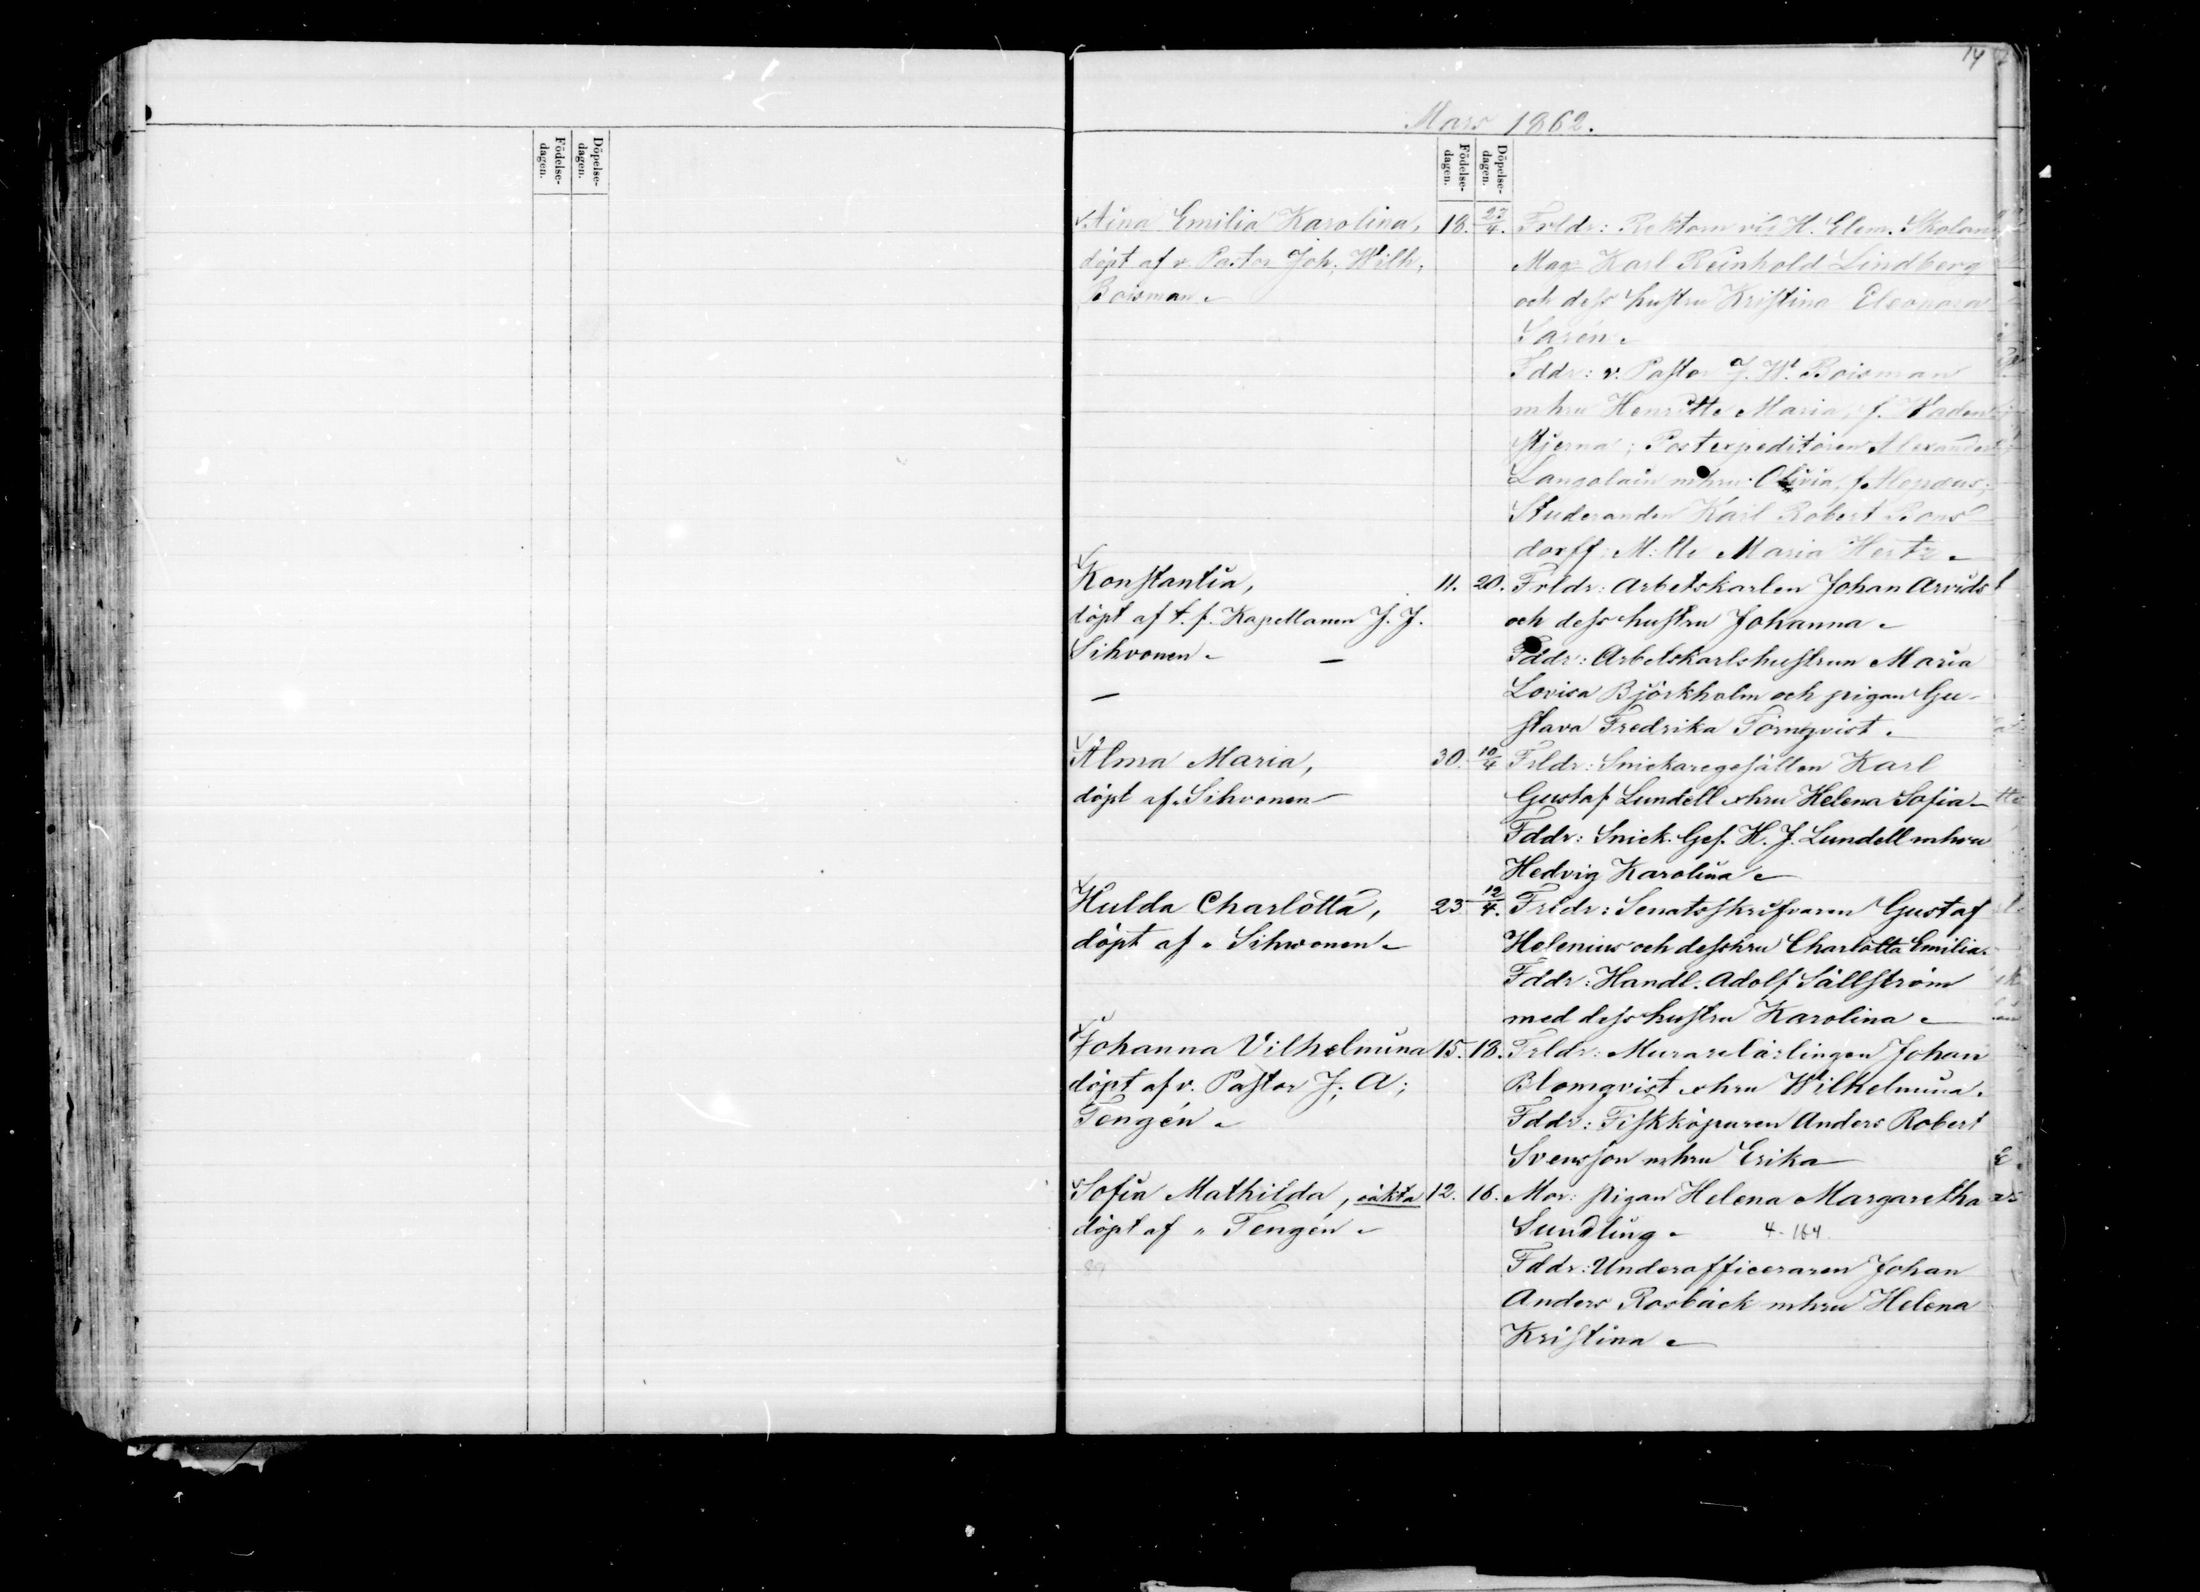 14
Mars 1862.
Födelse-
dagen.
Döpelse-
dagen.
Födelse-
dagen.
Döpelse-
dagen.
Aina Emilia Karolina, 18. 27/4. Frldr: Rektorn vid H. Elem. Skolan
döpt af v. Pastor Joh. Wilh. Mag. Karl Reinhold Lindberg
Boisman. och dess hustru Kristina Eleonora
Sarén.
Fddr: v. Pastor J. W. Boisman
mhru Henritte Maria, f. Waden-
stjerna; Postexpeditören Alexander
Langolain mhru Olivia, f.
Studeranden Karl Robert Bons-
dorff; M:lle Maria Hertz.
Konstantia, 11. 20. Frldr: Arbetskarlen Johan Arvids
döpt af t. f. Kapellanen J. J. och dess hustru Johanna.
Sihvonen. – Fddr: Arbetskarlshustrun Maria
– Lovisa Björkholm och pigan Gu-
stava Fredrika Törnqvist.
Alma Maria, 30. 10/4 Frldr: Snickaregesällen Karl
döpt af " Sihvonen Gustaf Lundell o hru Helena Sofia
Fddr: Snick. Ges. H. J. Lundell mhru
Hedvig Karolina.
Hulda Charlotta, 23 12/4. Frldr: Senatsskrifvaren Gustaf
döpt af " Sihvonen. Helenius och dess hru Charlotta Emilia.
Fddr: Handl. Adolf Sällström
med dess hustru Karolina.
Johanna Vilhelmina 15. 18. Frldr: Murarelärlingen Johan
döpt af v. Pastor J. A; Blomqvist o hru Wilhelmina.
Tengén. Fddr: Fiskköparen Anders Robert
Svensson mhru Erika
Sofia Mathilda, oäkta 12. 16. Mor: pigan Helena Margaretha
döpt af " Tengén. Sundling. 4. 164.
Fddr: Underofficeraren Johan
Anders Rosbäck mhru Helena
Kristina.